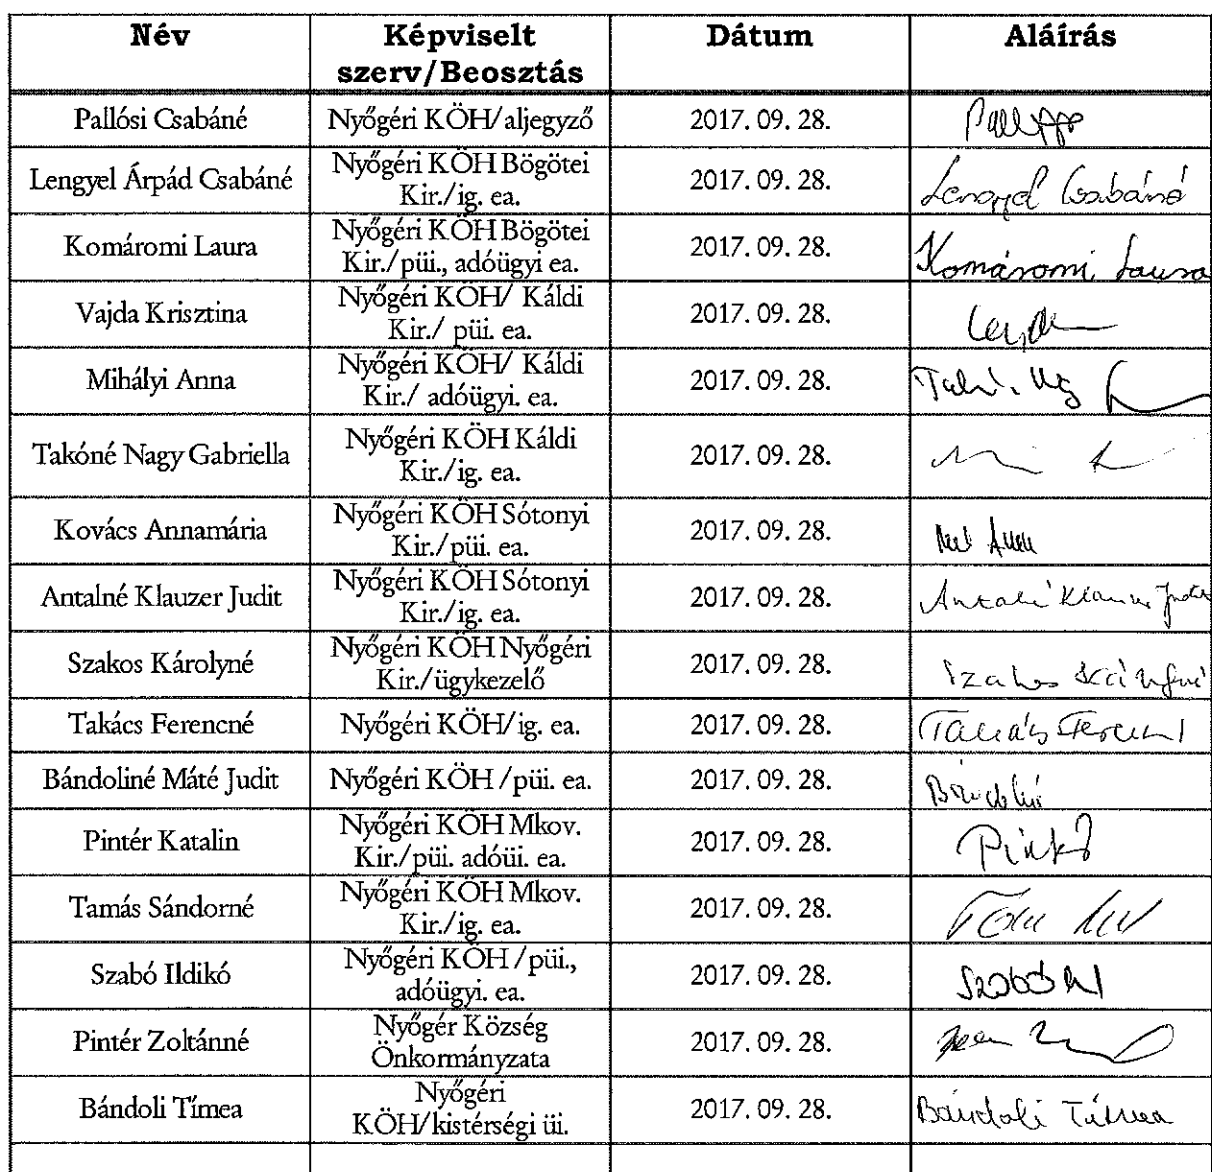 Név Képviselt szerv/Beosztás Dátum Aláírás
Pallósi Csabáné Nyőgéri KÖH/aljegyző 2017. 09. 28.
Lengyel Árpád Csabáné Nyőgéri KÖH Bögötei Kir./ig. ea. 2017. 09. 28. Lengyel Csabáné
Komáromi Laura Nyőgéri KÖH Bögötei Kir./püi., adóügyi ea. 2017. 09. 28. Komáromi Laura
Vajda Krisztina Nyőgéri KÖH/ Káldi Kir./ püi. ea. 2017. 09. 28.
Mihályi Anna Nyőgéri KÖH/ Káldi Kir./ adóügyi. ea. 2017. 09. 28.
Takóné Nagy Gabriella Nyőgéri KÖH Káldi Kir./ig. ea. 2017. 09. 28.
Kovács Annamária Nyőgéri KÖH Sótonyi Kir./püi. ea. 2017. 09. 28.
Antalné Klauzer Judit Nyőgéri KÖH Sótonyi Kir./ig. ea. 2017. 09. 28. Antalné Klauzer Judit
Szakos Károlyné Nyőgéri KÖH Nyőgéri Kir./ügykezelő 2017. 09. 28. Szakos Károlyné
Takács Ferencné Nyőgéri KÖH/ig. ea. 2017. 09. 28. Takács Ferencné
Bándoliné Máté Judit Nyőgéri KÖH /püi. ea. 2017. 09. 28. Bándoliné
Pintér Katalin Nyőgéri KÖH Mkov. Kir./püi. adóüi. ea. 2017. 09. 28. Pintér
Tamás Sándorné Nyőgéri KÖH Mkov. Kir./ig. ea. 2017. 09. 28.
Szabó Ildikó Nyőgéri KÖH /püi., adóügyi. ea. 2017. 09. 28. Szabó
Pintér Zoltánné Nyőgér Község Önkormányzata 2017. 09. 28.
Bándoli Tímea Nyőgéri KÖH/kistérségi üi. 2017. 09. 28. Bándoli Tímea